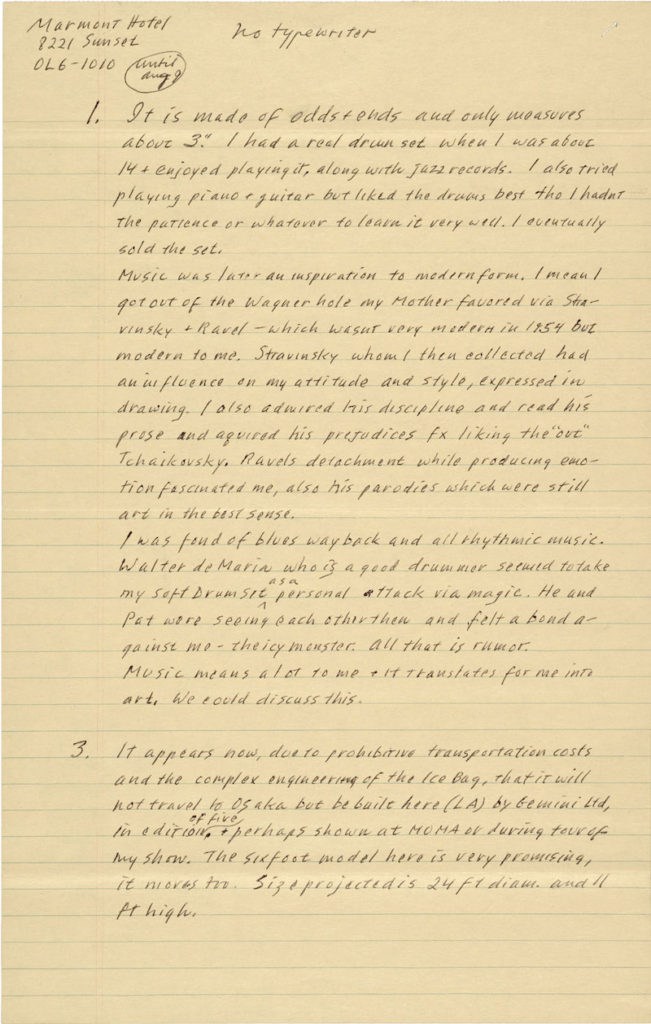 Marmont Hotel
8221 Sunset
OL6-1010 until aug 9
No typewriter
1. It is made of odds + ends and only measures
about 3". I had a real drum set when I was about
14 + enjoyed playing it, along with jazz records. I also tried
playing piano + guitar but liked the drums best tho I hadnt
the patience or whatever to learn it very well. I eventually
sold the set.
Music was later an inspiration to modern form. I mean I
got out of the Wagner hole my Mother favored via Stra-
vinsky + Ravel – which wasnt very modern in 1954 but
modern to me. Stravinsky whom I then collected had
an influence on my attitude and style, expressed in
drawing. I also admired his discipline and read his
prose and aquired his prejudices fx liking the "out"
Tchaikovsky. Ravels detachment while producing emo-
tion fascinated me, also his parodies which were still
art in the best sense.
I was fond of blues way back and all rhythmic music.
Walter de Maria who is a good drummer seemed to take
my Soft Drum Set as a personal attack via magic. He and
Pat were seeing each other then and felt a bond a-
gainst me – the icy monster. All that is rumor.
Music means a lot to me + it translates for me into
art. We could discuss this.
3. It appears now, due to prohibitive transportation costs
and the complex engineering of the Ice Bag, that it will
not travel to Osaka but be built here (LA) by Gemini Ltd,
in edition of five, + perhaps shown at MOMA or during tour of
my show. The sixfoot model here is very promising,
it moves too. Size projected is 24 ft diam. and 11
ft high.